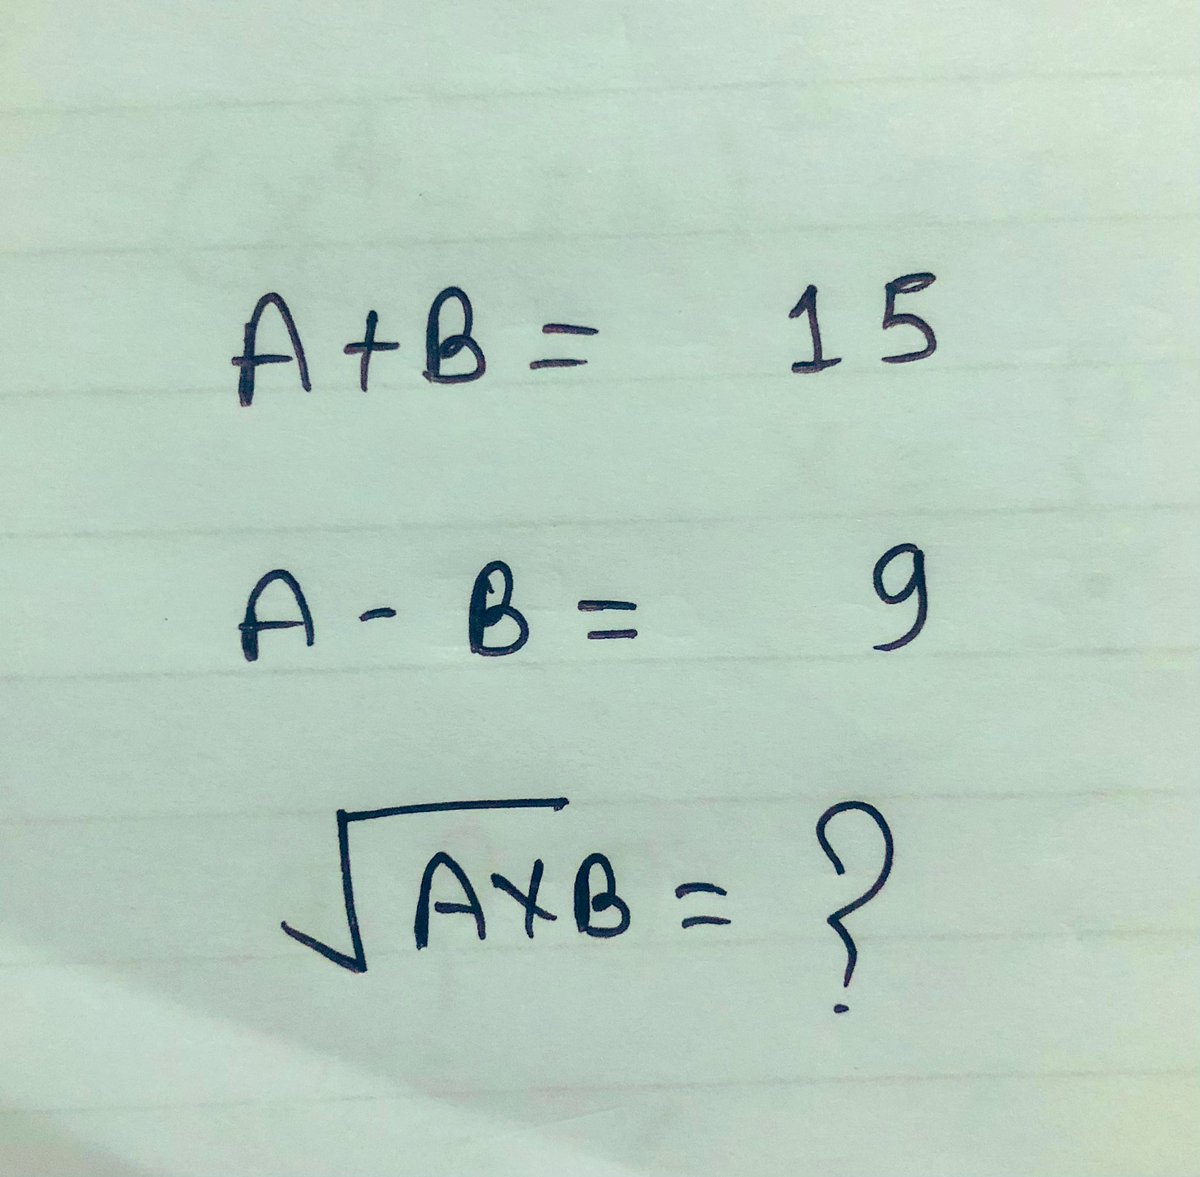 A+B= 15
A - B = 9
√AXB = ?